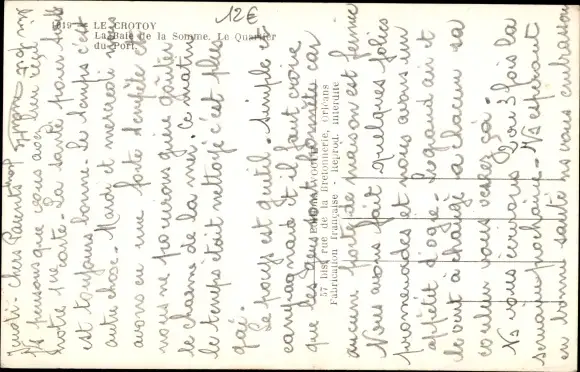 1619 - LE CROTOY
La Baie de la Somme. Le Quartier
du Port.
12€
57 bis, rue de la Bretonnerie, Orléans
Fabrication française - Reprod. interdite
Jeudi - Chers Parents
Ns pensons que vous avez bien reçu
notre carte. La santé pour tous
est toujours bonne. Le temps c'est
autre chose. Mardi et mercredi nous
avons eu une forte tempête et
nous ne pouvions guère goûter
le charme de la mer. Ce matin
le temps était nettoyé c'est plus
gai.
Le pays est gentil. simple et
campagnard et il faut croire
que les gens sont honnêtes car
aucune porte de maison est fermée
Nous avons fait quelques jolies
promenades et nous avons un
appétit d'ogre. Le grand air et
le vent a changé à chacun sa
couleur vous verrez ça.
Ns vous écrirons 2 ou 3 fois la
semaine prochaine. Ns espérant
en bonne santé ns vous embrassons